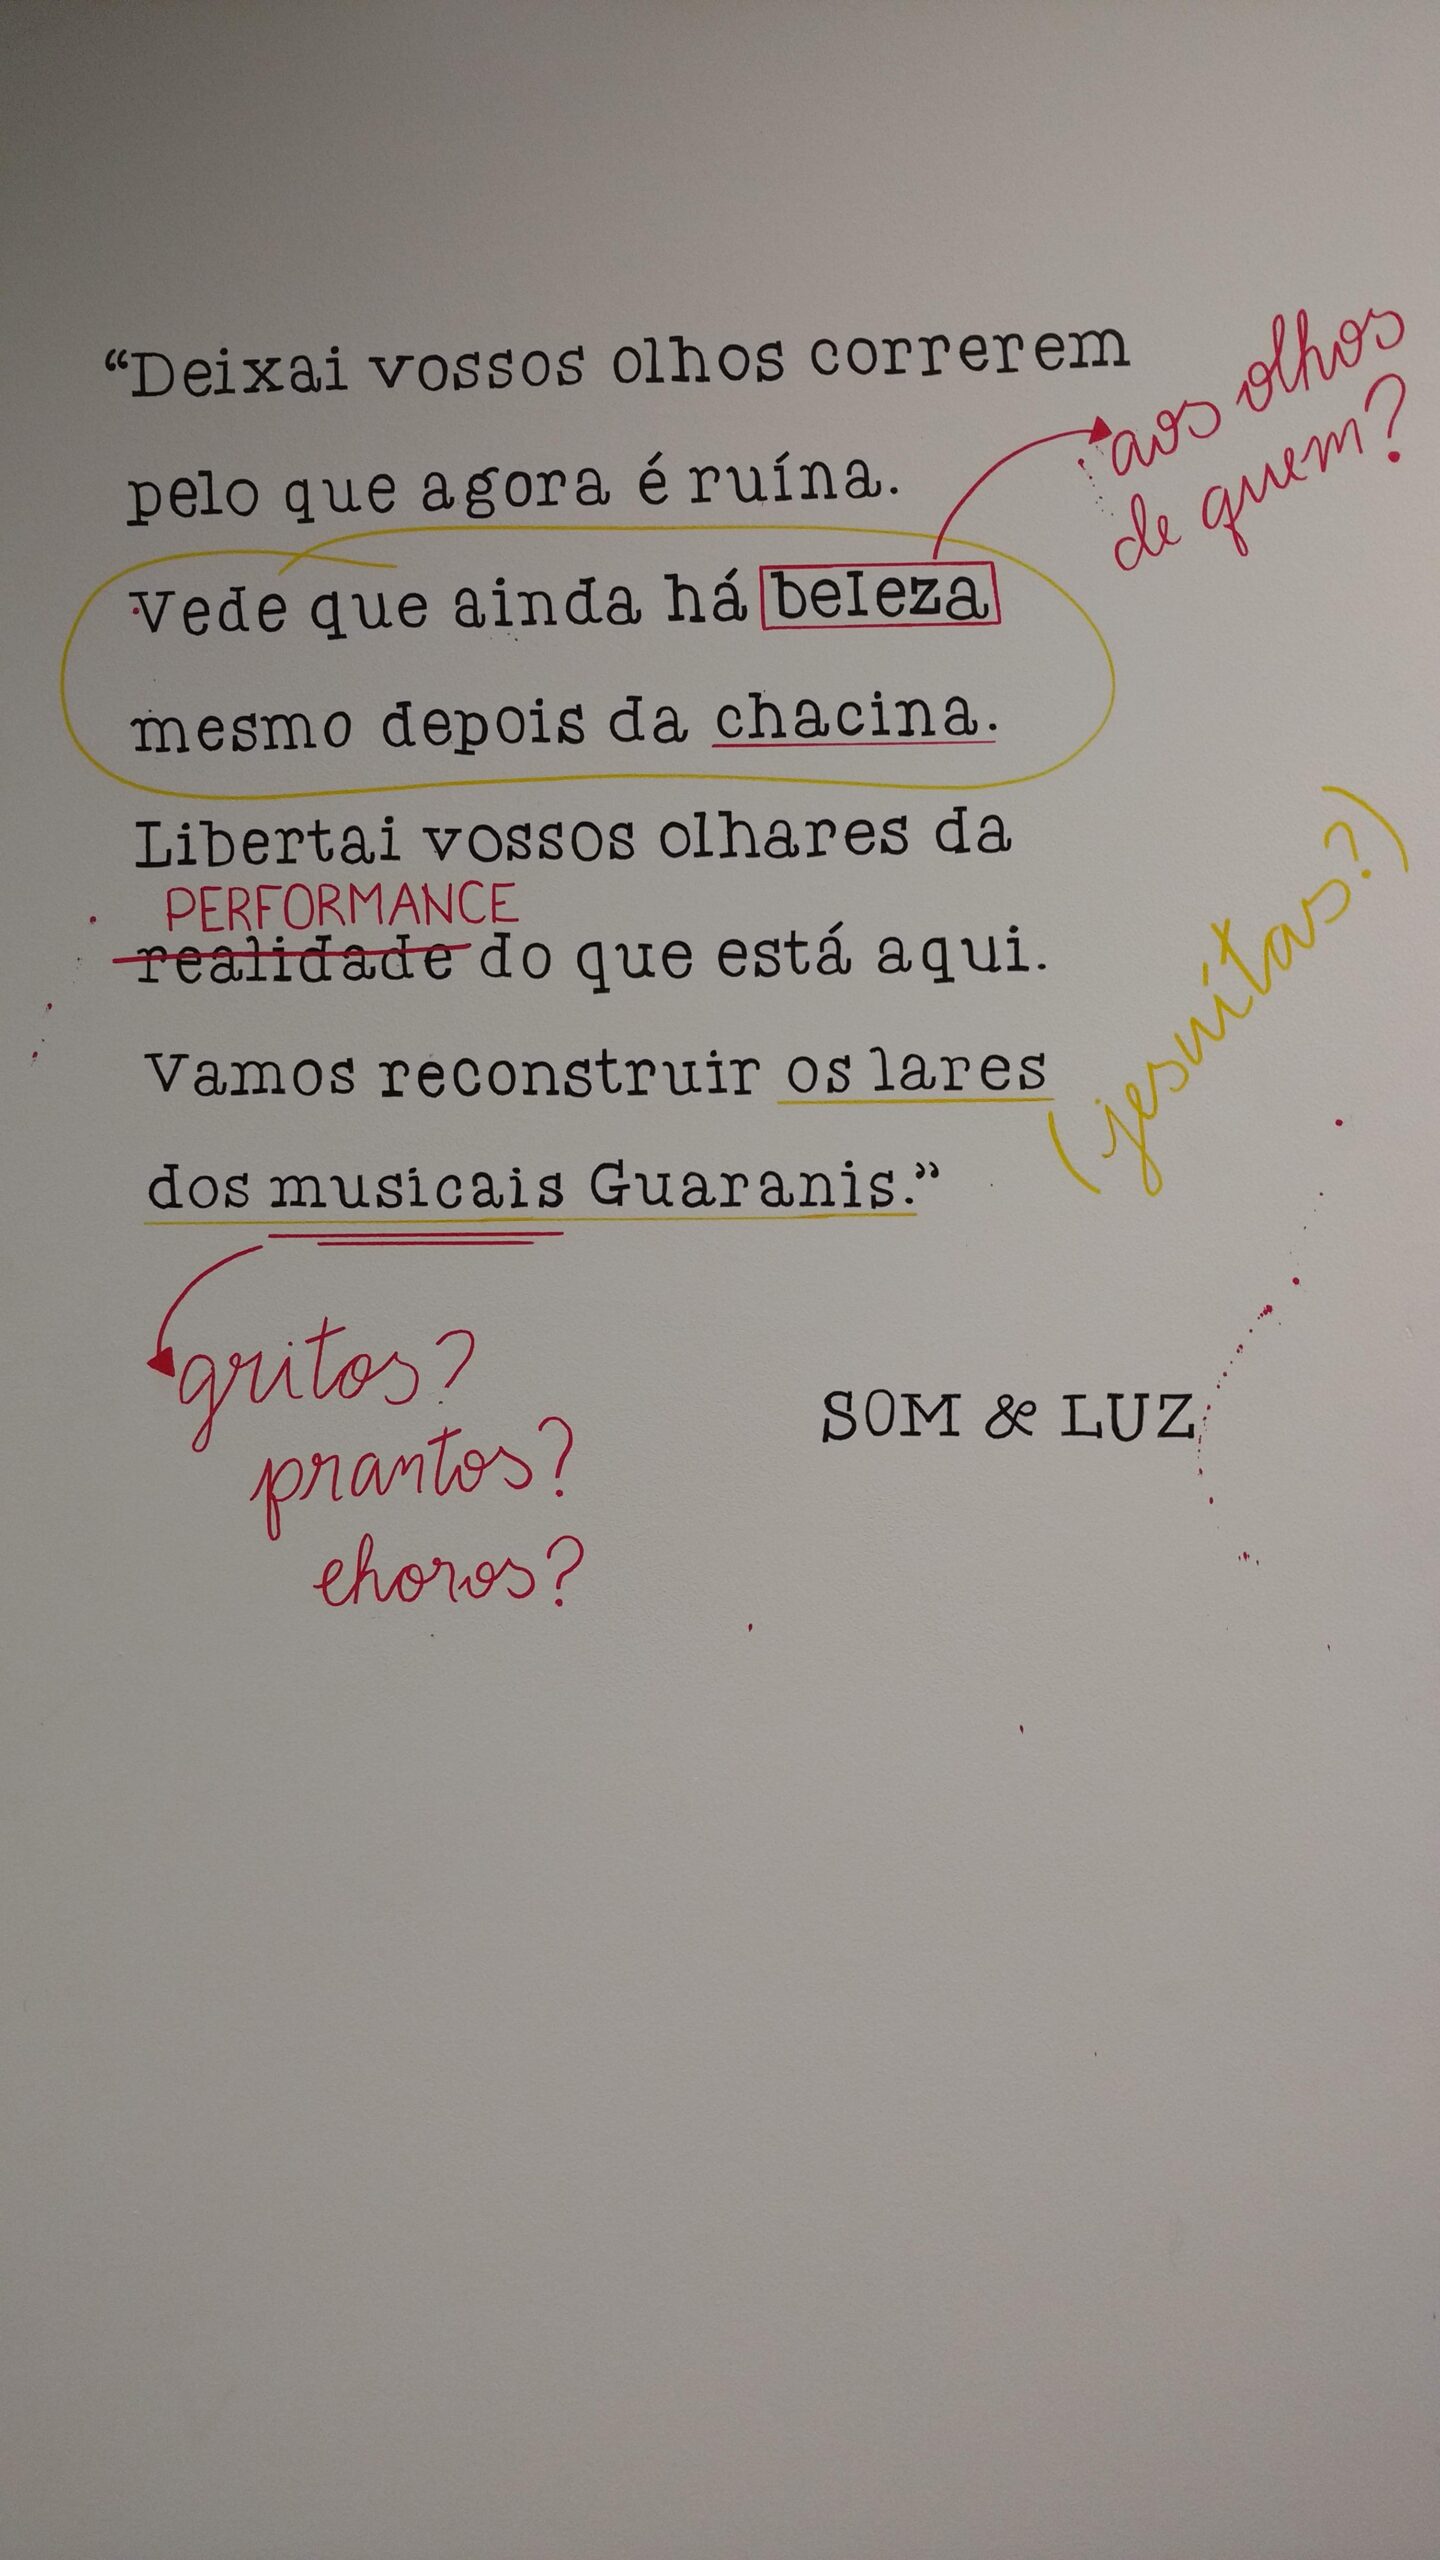 “Deixai vossos olhos correrem
aos olhos
de quem?
pelo que agora é ruína.
Vede que ainda há beleza
mesmo depois da chacina.
Libertai vossos olhares da
PERFORMANCE
realidade do que está aqui.
(jesuítas?)
Vamos reconstruir os lares
dos musicais Guaranis.”
gritos?
prantos?
choros?
SOM & LUZ